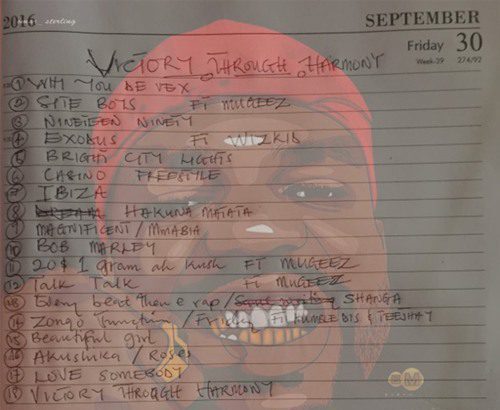 2016
sterling
SEPTEMBER
Friday 30
Week-39 274/92
VICTORY THROUGH HARMONY
1 WHY YOU DE VEX
2 SITE BOYS FT MUGEEZ
3 NINETEEN NINETY
4 EXODUS Ft WIZKID
5 BRIGHT CITY LIGHTS
6 CASINO FREESTYLE
7 IBIZA
8 HAKUNA MATATA
9 MAGNIFICENT / MMABIA
10 BOB MARLEY
11 20$ 1 gram ah kush FT MUGEEZ
12 Talk Talk Ft MUGEEZ
13 Every beat there e rap / SHANGA
14 Zongo Junction / Ft HUMBLE DIS & TEEJHAY
15 Beautiful girl
16 Akushika / Roses
17 LOVE SOMEBODY
18 VICTORY THROUGH HARMONY